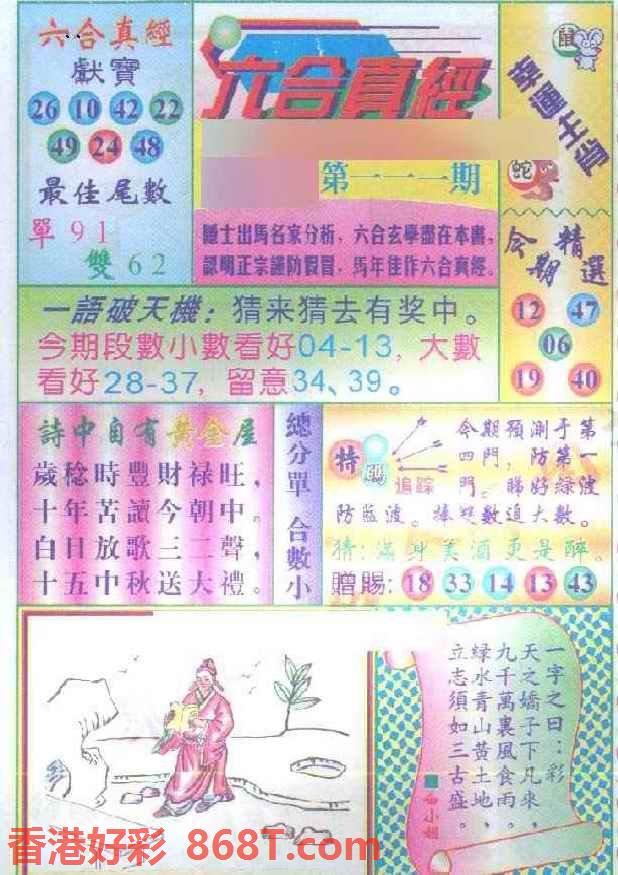 六合真經
獻寶
26 10 42 22
49 24 48
最佳尾數
單 9 1
雙 6 2
六合真經
第一一一期
隱士出馬名家分析，六合玄學盡在本書，
認明正宗謹防假冒，馬年佳作六合真經。
鼠
幸運生肖
蛇
今期精選
12 47
06
19 40
一語破天機：猜来猜去有奖中。
今期段數小數看好04-13，大數
看好28-37，留意34、39。
詩中自有黃金屋
歲稔時豐財禄旺，
十年苦讀今朝中。
白日放歌三二聲，
十五中秋送大禮。
總分單 合數小
特碼
追踪
今期預測于第
四門，防第一
門。睇好綠波
防藍波。捧雙數追大數。
猜：滿身美酒更是醉。
贈賜：18 33 14 13 43
一字之曰：彩
天之嬌子下凡來，
九千萬裏風食雨，
绿水青山黃土地，
立志須如三古盛。
小姐
香港好彩 868T.com